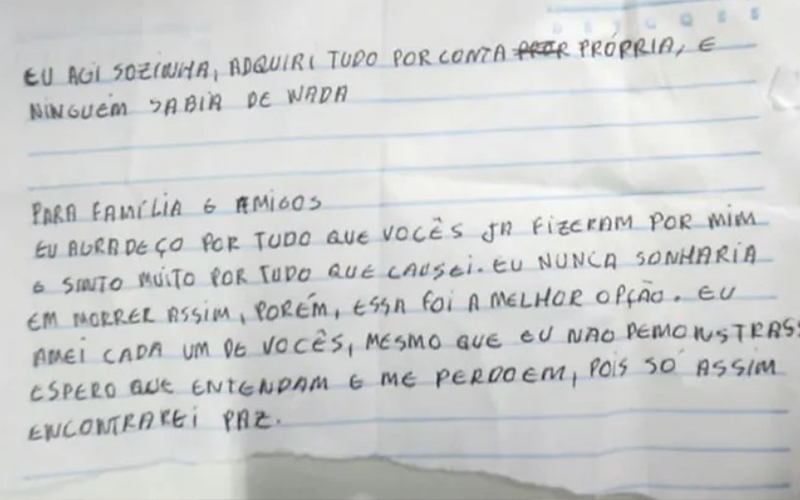 D S T Q Q S S
EU AGI SOZINHA, ADQUIRI TUDO POR CONTA PRÓPRIA, E
NINGUÉM SABIA DE NADA
PARA FAMÍLIA E AMIGOS
EU AGRADEÇO POR TUDO QUE VOCÊS JA FIZERAM POR MIM
E SINTO MUITO POR TUDO QUE CAUSEI. EU NUNCA SONHARIA
EM MORRER ASSIM, PORÉM, ESSA FOI A MELHOR OPÇÃO. EU
AMEI CADA UM DE VOCÊS, MESMO QUE EU NAO DEMONSTRASS
ESPERO QUE ENTENDAM E ME PERDOEM, POIS SÓ ASSIM
ENCONTRAREI PAZ.